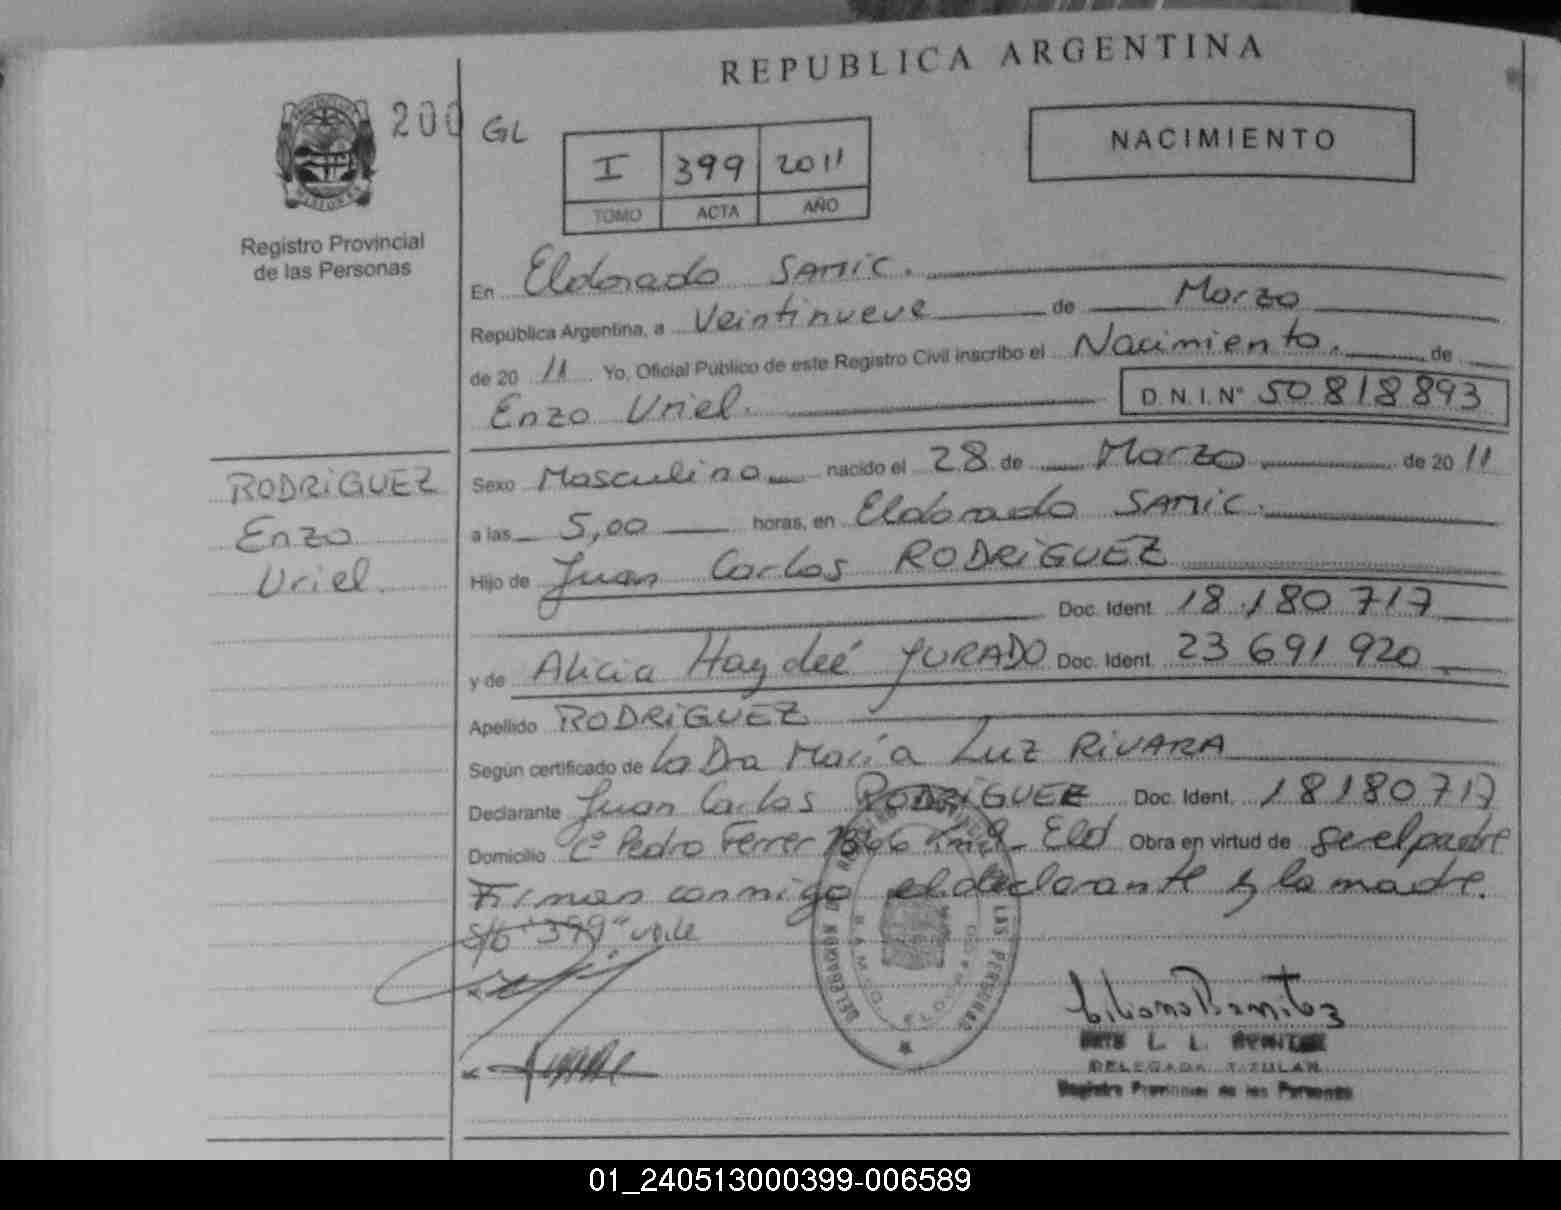 REPUBLICA ARGENTINA
200 GL
NACIMIENTO
I 399 2011
TOMO ACTA AÑO
Registro Provincial
de las Personas
En Eldorado SAMIC.
República Argentina, a Veintinueve de Marzo
de 20 11 Yo, Oficial Público de este Registro Civil inscribo el Nacimiento. de
Enzo Uriel. D.N.I. Nº 50818893
RODRIGUEZ
Enzo
Uriel.
Sexo Masculino nacido el 28 de Marzo de 20 11
a las 5,00 horas, en Eldorado SAMIC.
Hijo de Juan Carlos RODRIGUEZ
Doc. Ident. 18.180 717
y de Alicia Haydeé JURADO Doc. Ident. 23 691 920
Apellido RODRIGUEZ
Según certificado de La Dra María Luz RIVARA
Declarante Juan Carlos RODRIGUEZ Doc. Ident. 18180717
Domicilio Cº Pedro Ferrer Eld Obra en virtud de ser el padre
Firman conmigo el declarante y la madre.
S/b "399" vale
DELEGACION LAS PERSONAS
ELDORADO
Liliana Benitez
L. L. BENITEZ
DELEGADA TITULAR
Registro Provincial de las Personas
01_240513000399-006589